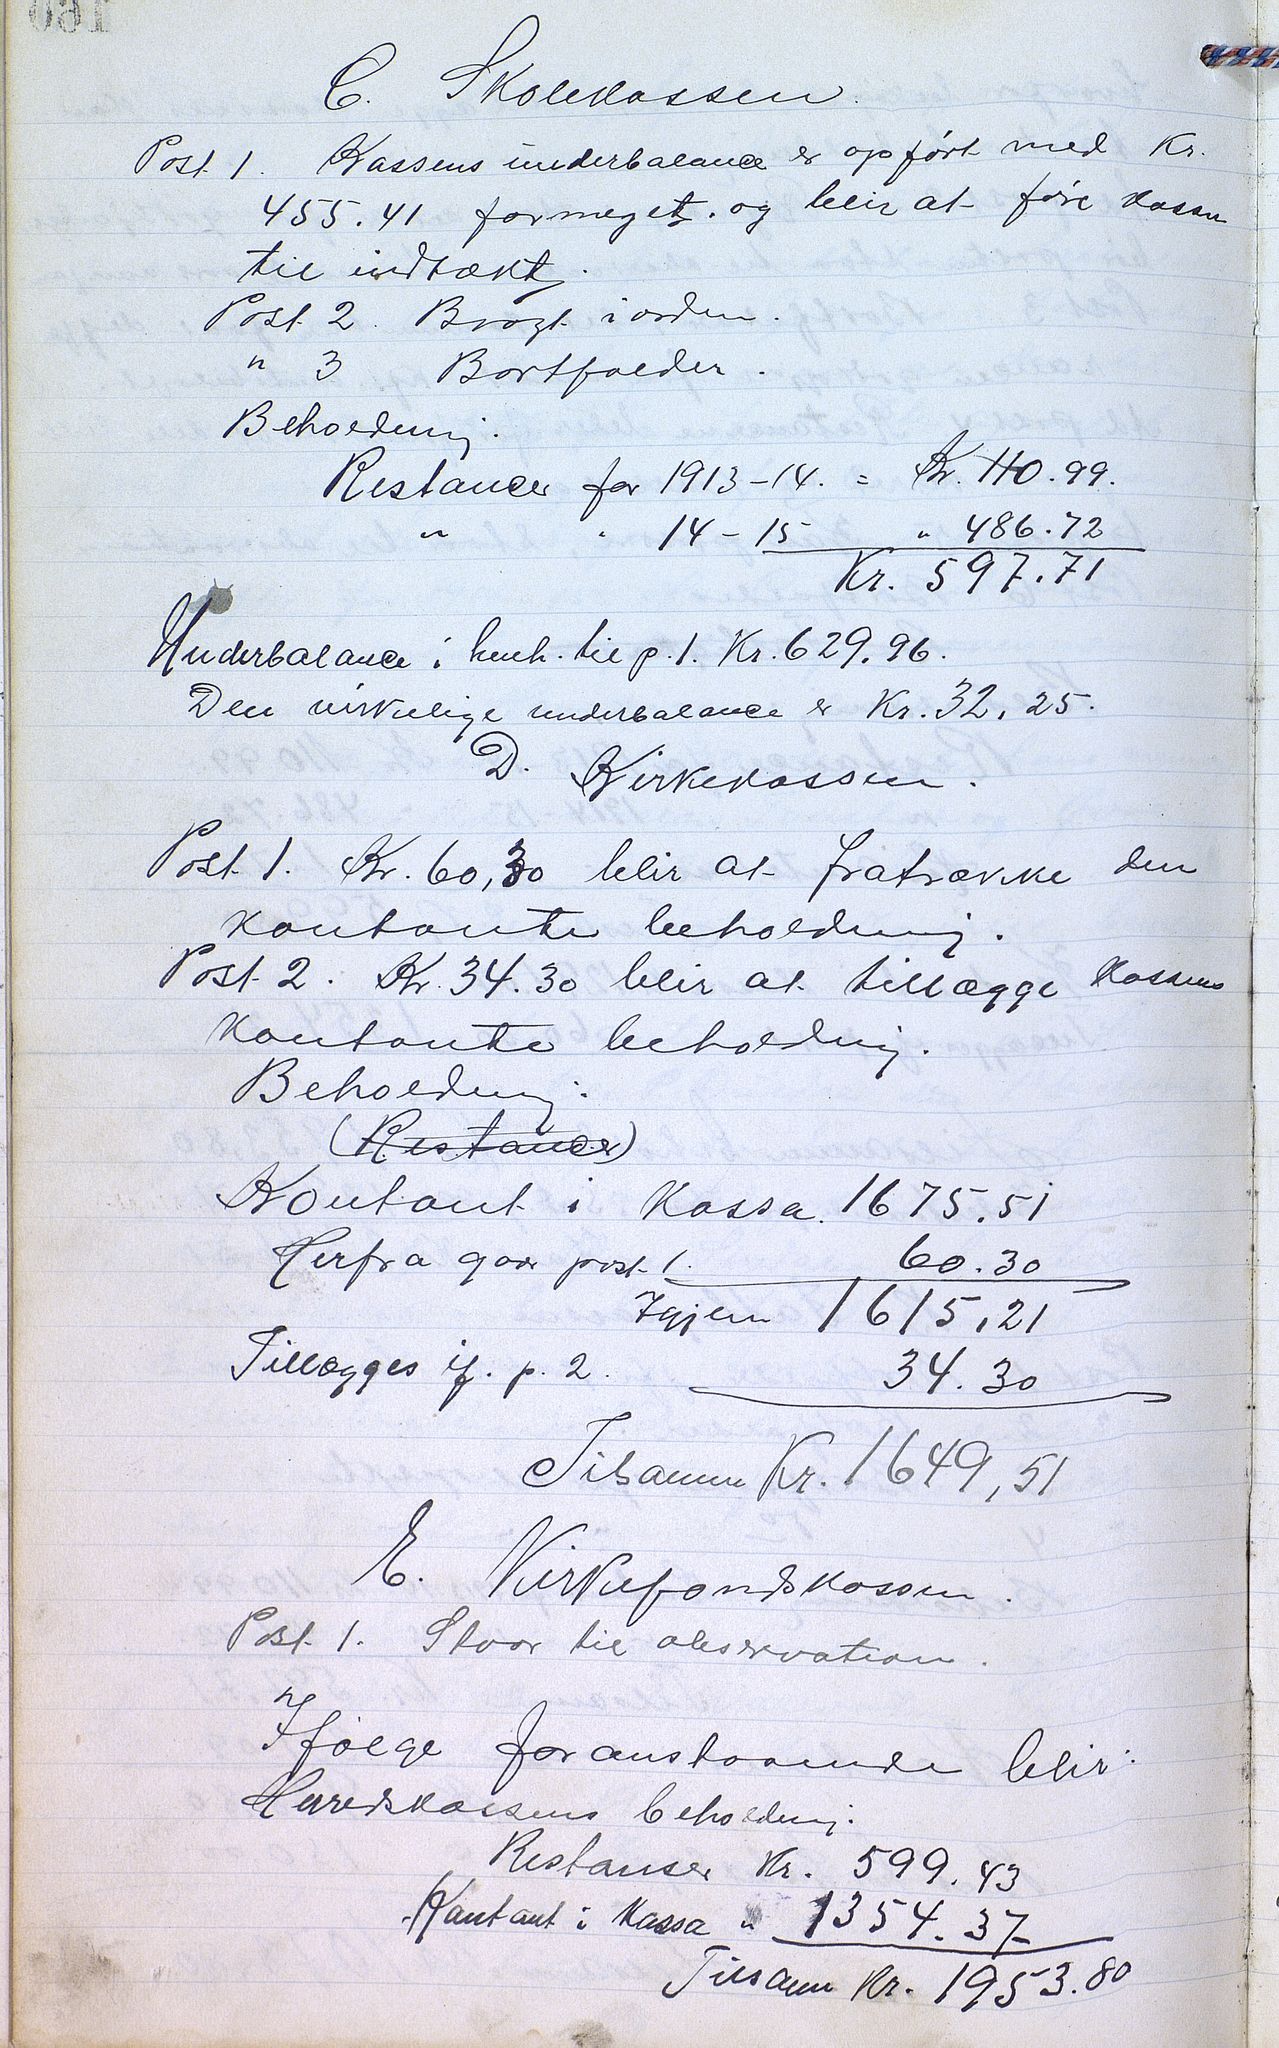 C. Skolekassen.
Post 1. Kassens underbalance er opført med Kr.
455.41 formeget. og blir at føre kassen
til indtækt.
Post 2. Bragt i orden.
" 3 Bortfalder.
Beholdning.
Restancer for 1913-14. = Kr. 110.99.
" " 14-15 " 486.72
Kr. 597.71
Underbalance i henh. til p. 1. Kr. 629.96.
Den virkelige underbalance er Kr. 32,25.
D. Kirkekassen.
Post 1. Kr. 60,30 blir at fratrække den
kontante beholdning.
Post 2. Kr. 34.30 blir at tillægge kassens
kontante beholdning.
Beholdning:
(Restancer)
Kontant i Kassa. 1675.51
Herfra gaar post 1. 60.30
Igjen 1615,21
Tillægges if. p. 2. 34.30
Tilsamm Kr. 1649,51
E. Kirkefondskassen.
Post 1. Staar til observation.
Ifølge foranstaaende blir:
Herredskassens beholdning.
Restanser Kr. 599.43
Kontant i Kassa " 1354.37
Tilsam Kr. 1953.80